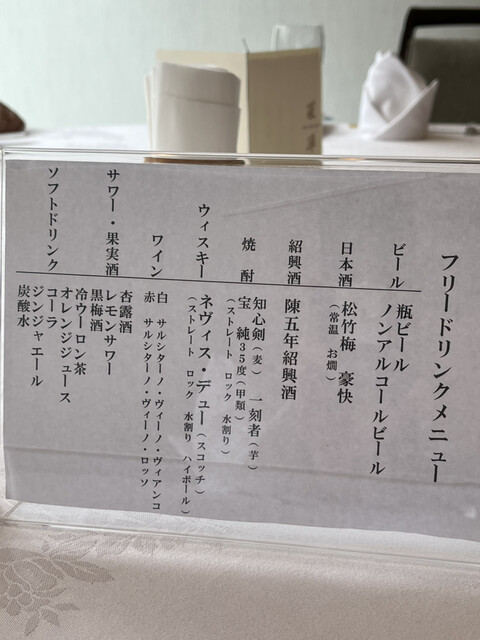 フリードリンクメニュー
ビール
瓶ビール
ノンアルコールビール
日本酒
松竹梅 豪快
(常温 お燗)
紹興酒
陳五年紹興酒
焼酎
知心剣(麦) 一刻者(芋)
宝 純35度(甲類)
(ストレート ロック 水割り)
ウィスキー
ネヴィス・デュー(スコッチ)
(ストレート ロック 水割り ハイボール)
ワイン
白 サルシターノ・ヴィーノ・ヴィアンコ
赤 サルシターノ・ヴィーノ・ロッソ
サワー・果実酒
杏露酒
レモンサワー
黒梅酒
ソフトドリンク
冷ウーロン茶
オレンジジュース
コーラ
ジンジャエール
炭酸水